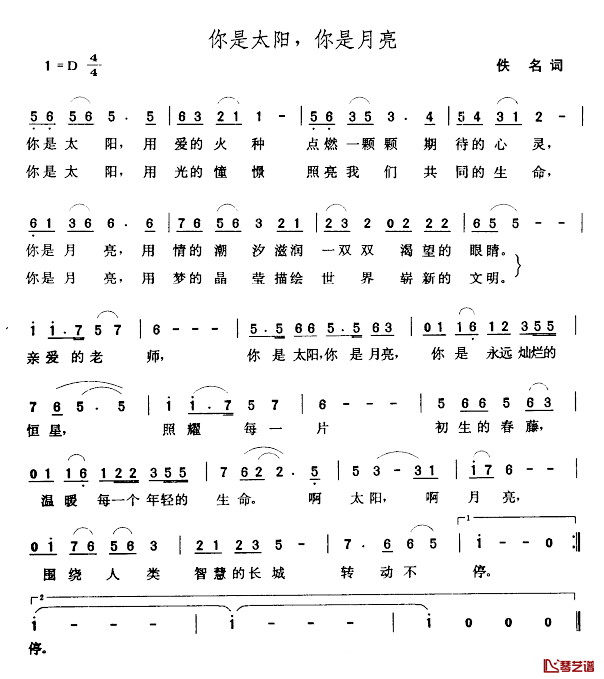 你是太阳，你是月亮
1=D 4/4
佚 名 词
5 6 5 6 5. 5 | 6 3 2 1 1 - | 5 6 3 5 3. 4 | 5 4 3 1 2 - |
你是 太 阳，用 爱的 火 种 点燃 一颗颗 期 待的 心 灵，
你是 太 阳，用 光的 憧 憬 照亮 我们 共 同的 生 命，
6 1 3 6 6. 6 | 7 6 5 6 3 2 1 | 2 3 2 0 2 2 2 | 6 5 5 - - |
你是 月 亮，用 情的 潮 汐滋润 一双双 渴望的 眼睛。
你是 月 亮，用 梦的 晶 莹描绘 世 界 崭新的 文明。
i i. 7 5 7 | 6 - - - | 5. 5 6 6 5. 5 6 3 | 0 1 1 6 1 2 3 5 5 |
亲 爱 的 老 师， 你 是 太阳,你 是 月亮， 你 是 永远 灿烂的
7 6 5. 5 | i i. 7 5 7 | 6 - - | 5 6 6 5 6 3 |
恒 星， 照 耀 每 一 片 初 生的 春 藤，
0 1 1 6 1 2 2 3 5 5 | 7 6 2 2. 5 | 5 3 - 3 1 | i 7 6 - |
温 暖 每一个 年轻的 生 命。 啊 太 阳， 啊 月 亮，
0 i 7 6 5 6 3 | 2 1 2 3 5 - | 7. 6 6 5 | 1 i - - 0 :||
围 绕 人 类 智慧的 长 城 转 动 不 停。
2 i - - - | i - - - | i - - - | i 0 0 0 ||
停。
琴艺谱